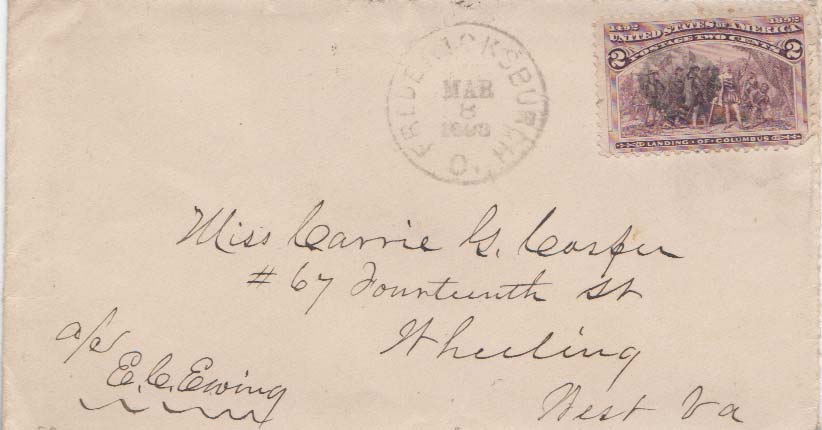 FREDERICKSBURGH O.
MAR
8
1893
1492 1892
UNITED STATES OF AMERICA
POSTAGE TWO CENTS
2 2
LANDING · OF · COLUMBUS
Miss Carrie G.
#67 Fourteenth St
Wheeling
West Va
E. C. Ewing